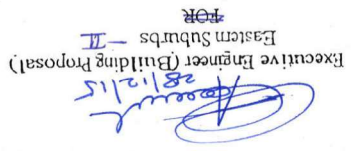 28/12/15
Executive Engineer (Building Proposal)
Eastern Suburbs - II
FOR